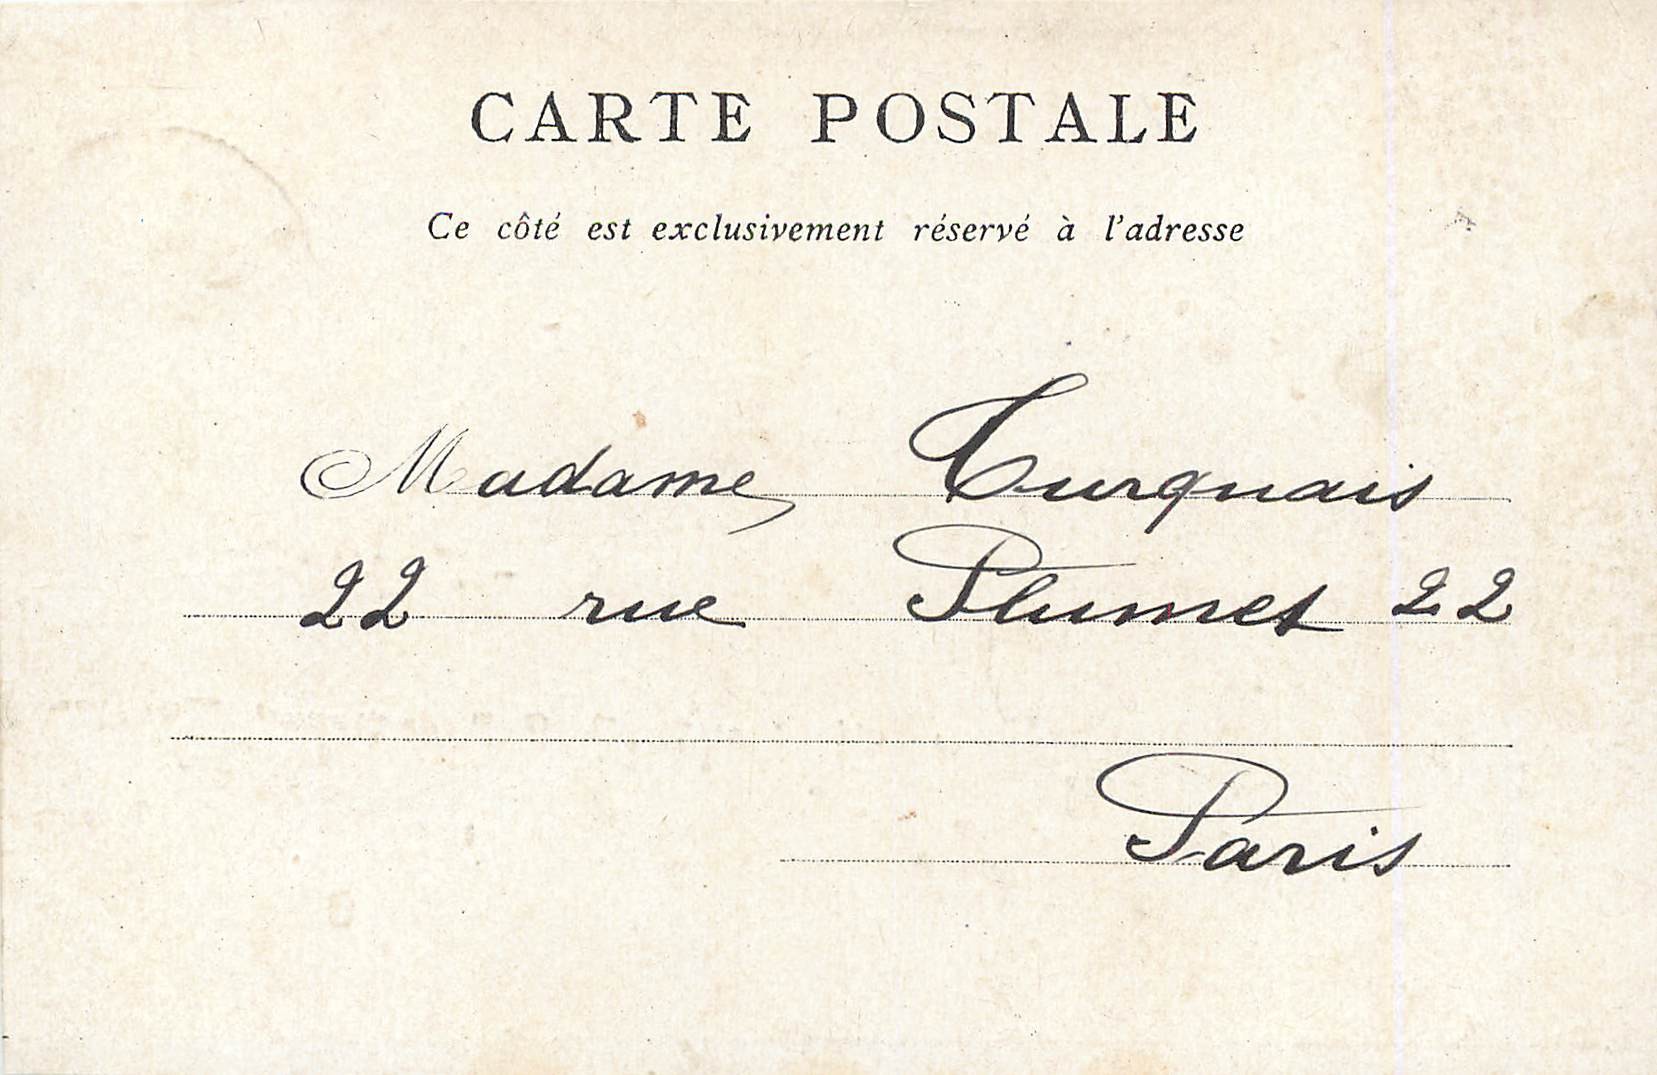 CARTE POSTALE
Ce côté est exclusivement réservé à l'adresse
Madame Turquais
22 rue Plumet 22
Paris